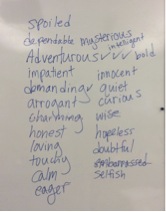 spoiled
dependable mysterious
intelligent
Adventurous ✓ ✓ ✓ ✓ bold
impatient innocent
demanding quiet
arrogant curious
charming wise
honest hopeless
loving doubtful
touchy embarrassed
calm selfish
eager